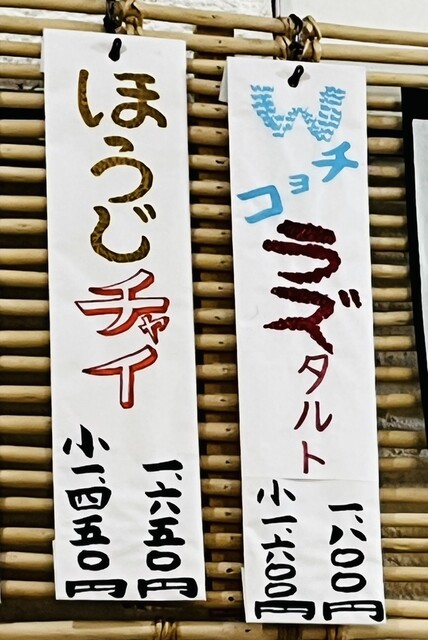 Wチョコ
ラズ
タルト
一、八〇〇円
小一、六〇〇円
ほうじ
チャイ
一、六五〇円
小一、四五〇円